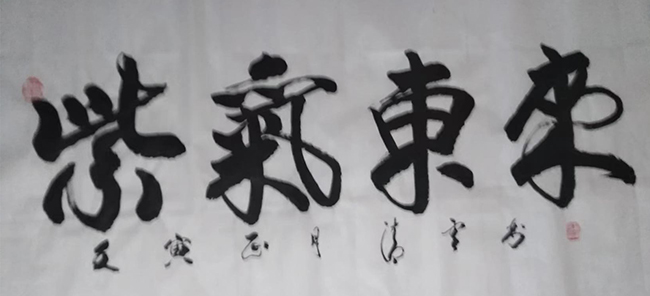 紫氣東來
壬寅正月清雲書